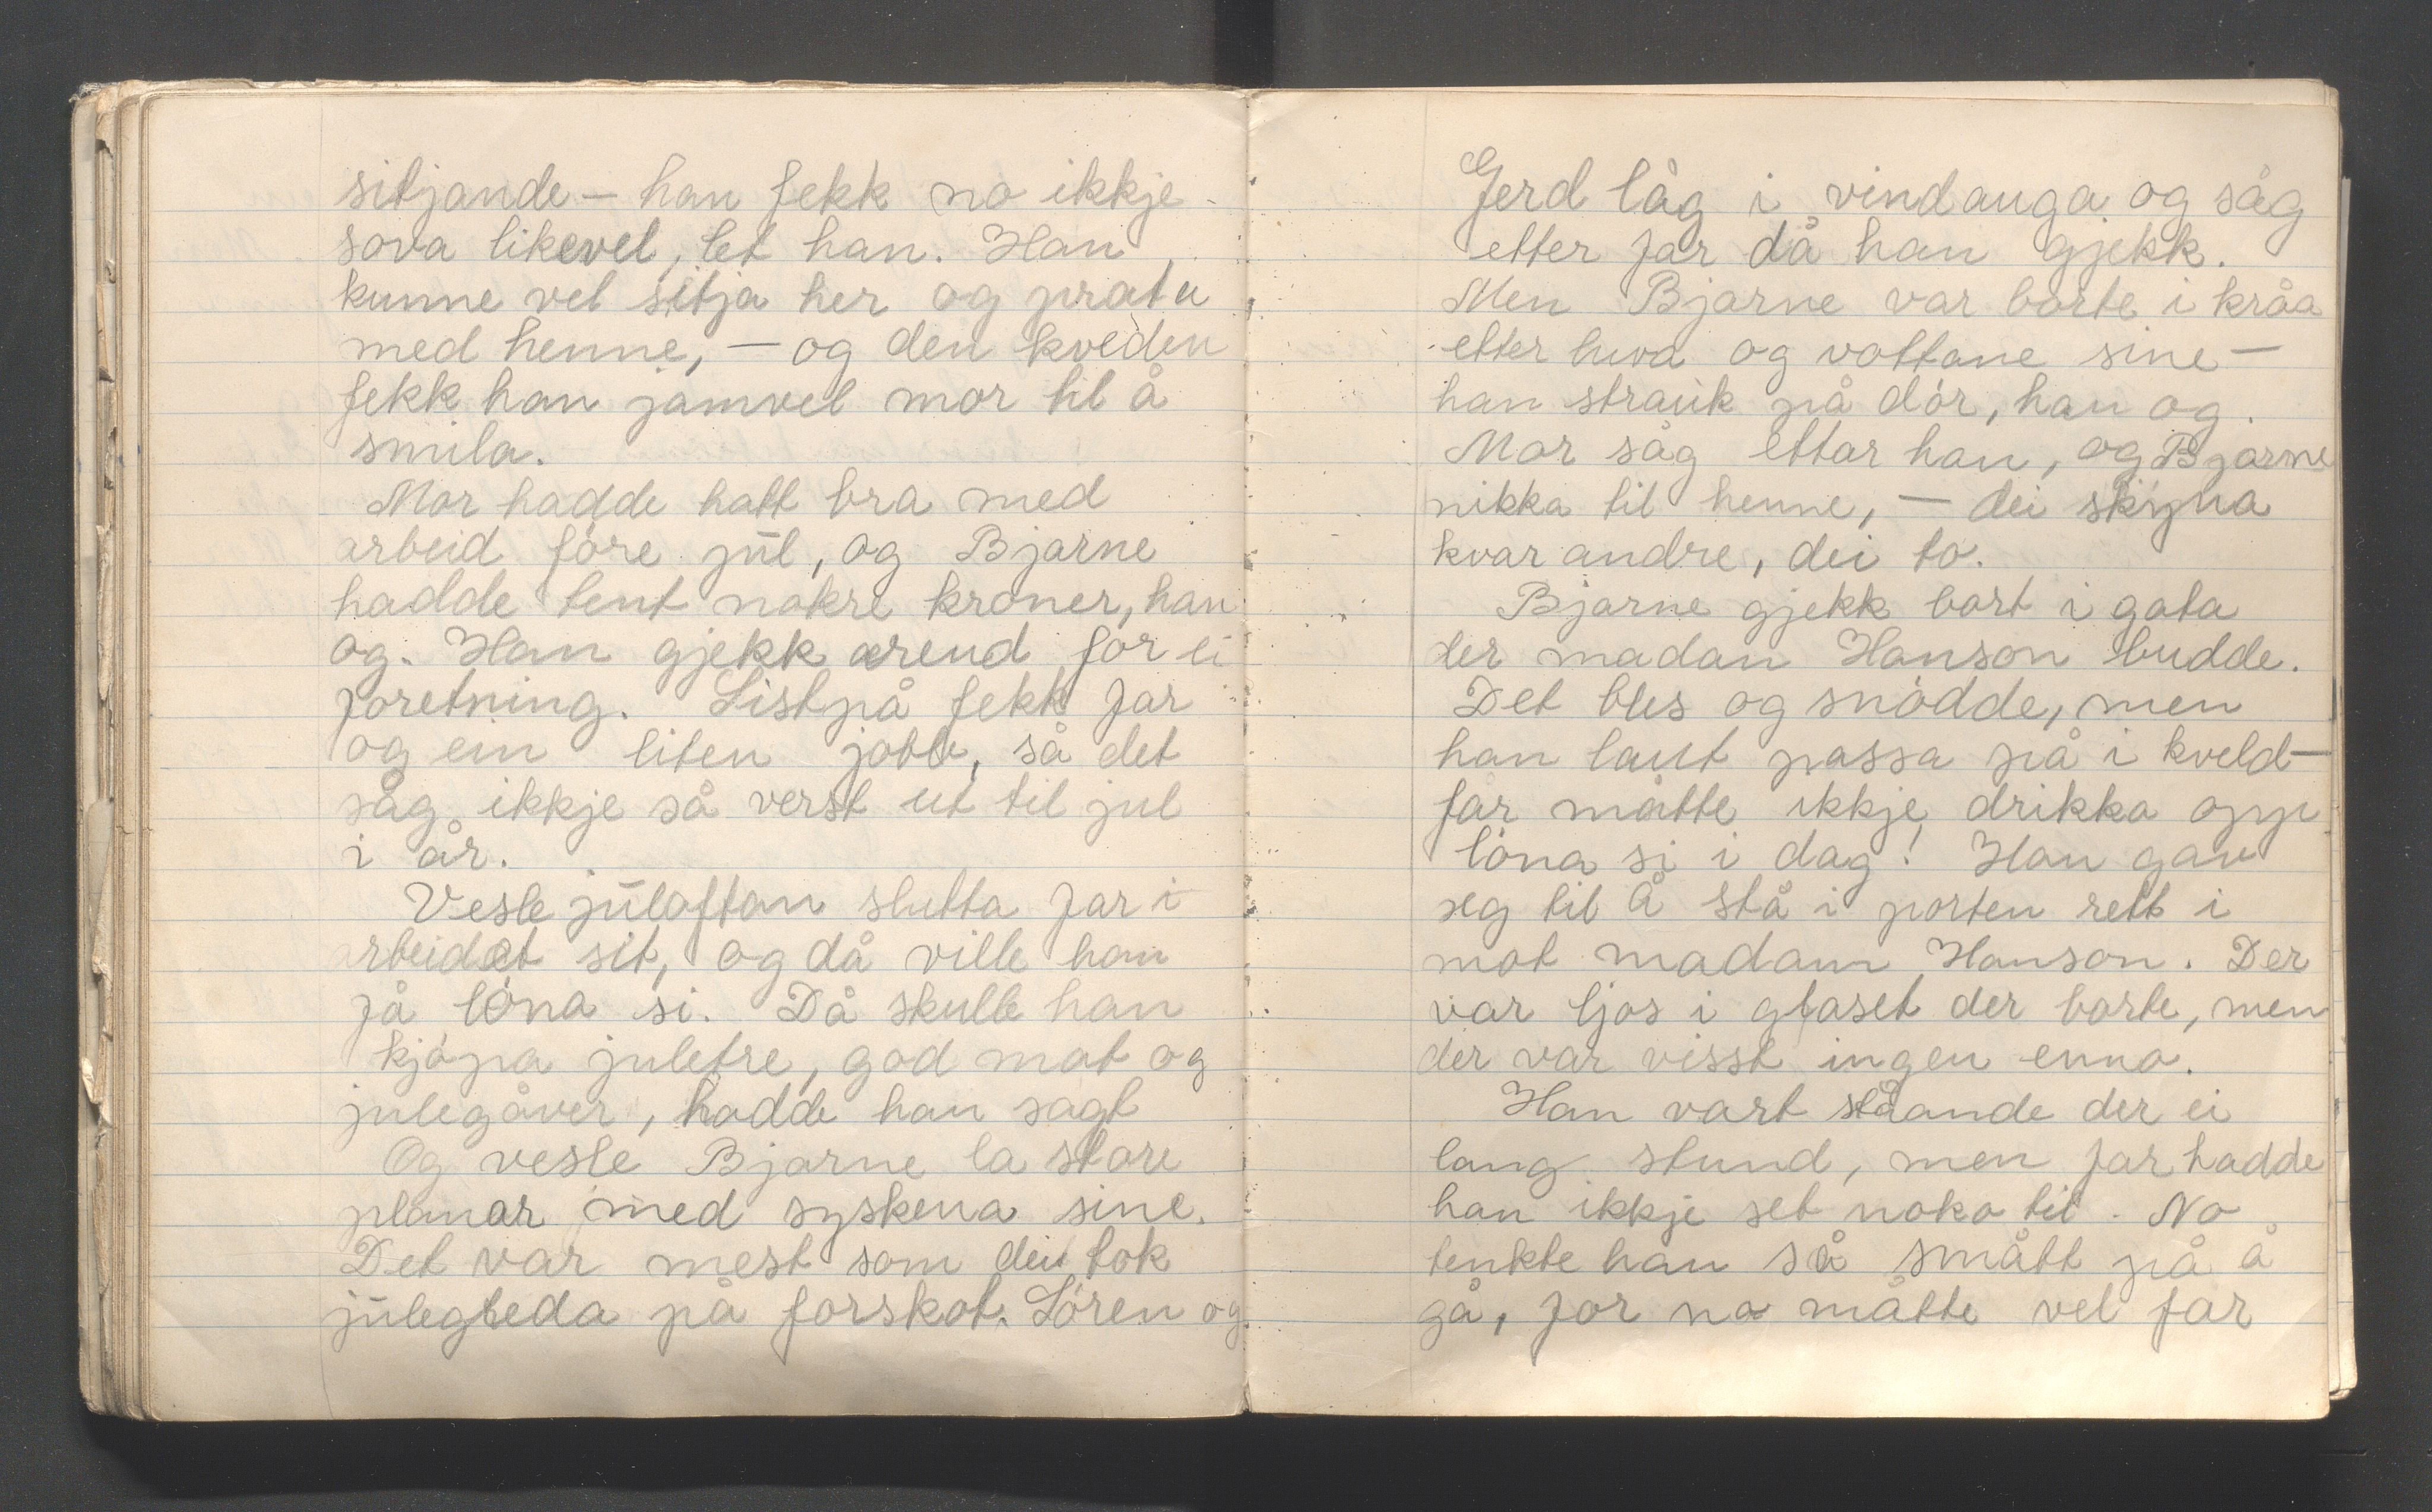 sitjande - han fekk no ikkje
sova likevel, let han. Han
kunne vel sitja her og prata
med henne, - og den kvelden
fekk han jamvel mor til å
smila.
Mor hadde hatt bra med
arbeid fóre jūl, og Bjarne
hadde tent nokre kroner, han
og. Han gjekk ærend for ei
foretning. Sistpå fekk far
og ein liten jobb, så det
såg ikkje så verst ut til jul
i år.
Vesle jūlaftan slutta far i
arbeidet sit, og då ville han
få lóna si. Då skulle han
kjópa juletre, god mat og
julegåver, hadde han sagt
Og vesle Bjarne la store
planar med syskena sine.
Det var mest som dei tok
jūlegleda på forskot. Sóren og
Gerd låg i vindauga og såg
etter far då han gjekk.
Men Bjarne var borte i kråa
etter huva og vottane sine -
han strauk på dór, han og.
Mor såg ettar han, og Bjarne
nikka til henne, - dei skyna
kvarandre, dei to.
Bjarne gjekk bort i gata
der madan Hanson budde.
Det bles og snódde, men
han laut passa på i kveld -
far måtte ikkje drikka opp
lóna si i dag! Han gav
seg til å stå i porten rett i
mot madam Hanson. Der
var ljos i glaset der borte, men
der var visst ingen enno.
Han vart ståande der ei
lang stund, men far hadde
han ikkje set noko til. No
tenkte han så smått på å
gå, for no måtte vel far